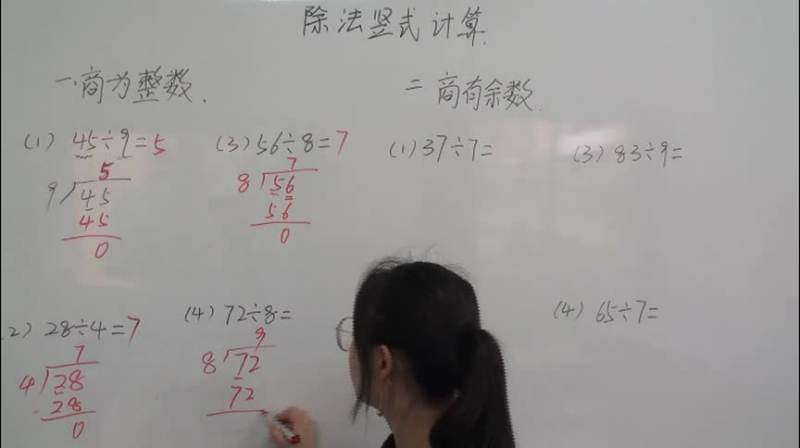 除法竖式计算
一、商为整数.
二 商有余数
(1) 45÷9=5
5
9 45
45
0
(3) 56÷8=7
7
8 56
56
0
(1) 37÷7=
(3) 83÷9=
2) 28÷4=7
7
4 28
28
0
(4) 72÷8=
9
8 72
72
(4) 65÷7=